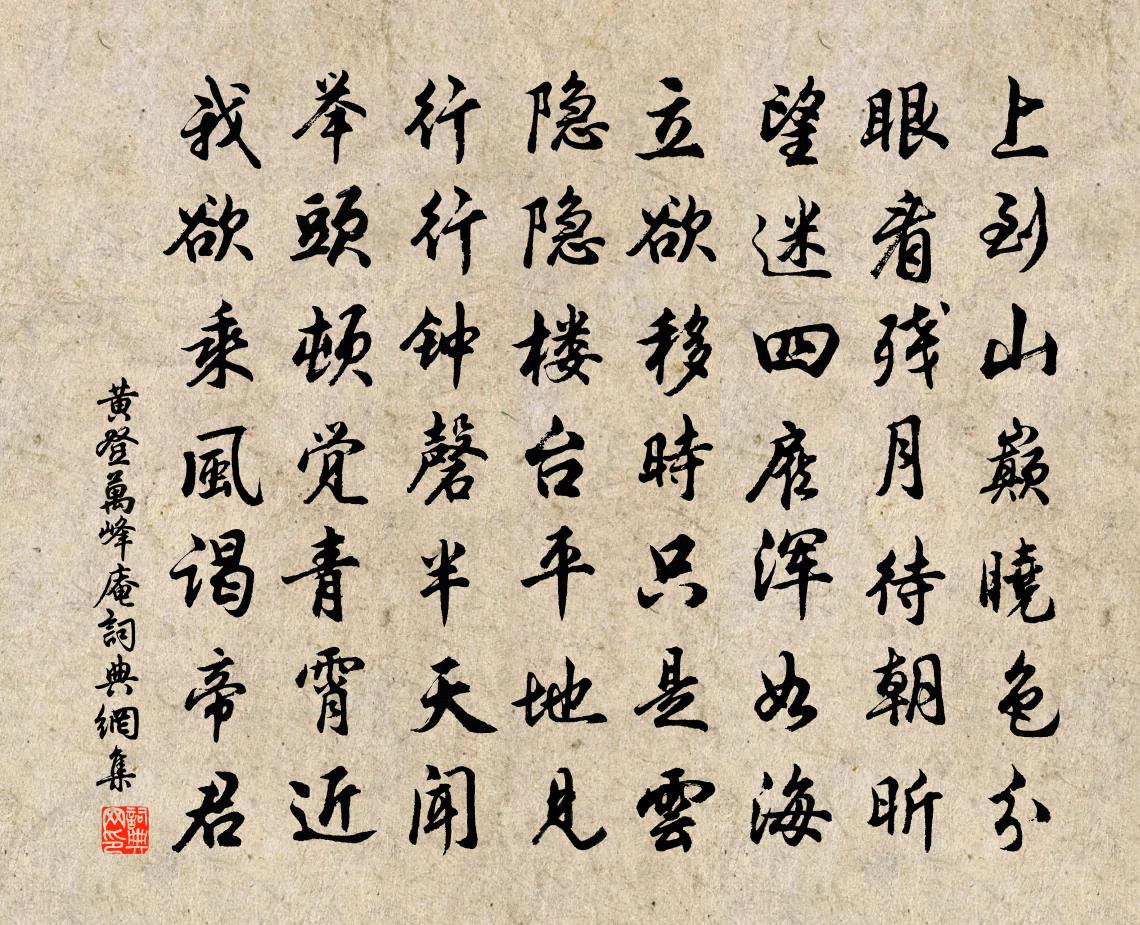 上到山巅曉色分
眼看残月待朝昕
望迷四處浑如海
立欲移時只是雲
隐隐楼台平地見
行行钟磬半天闻
举頭顿觉青霄近
我欲乘風谒帝君
黄登萬峰庵詞典網集
詞典网印